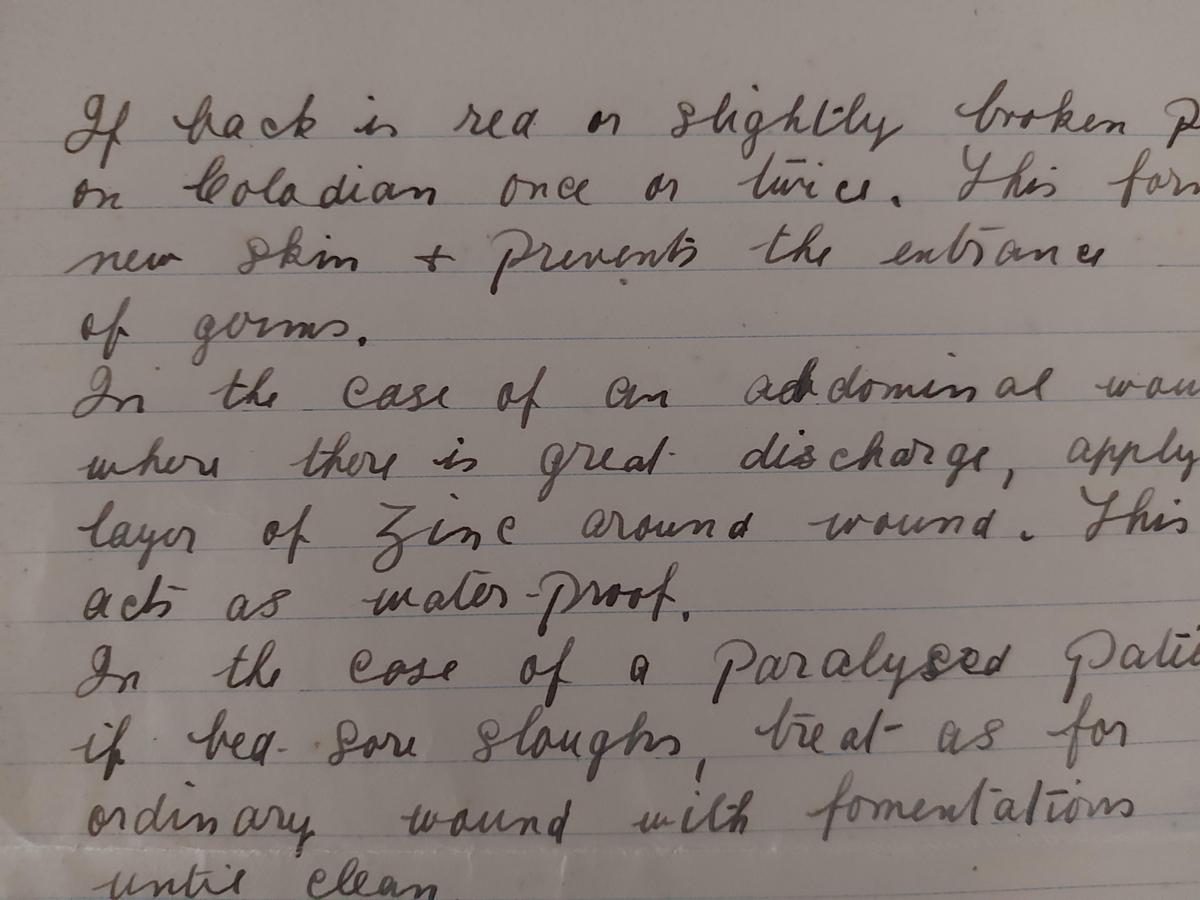 If back is red or slightly broken p
on Coladian once or twice. This for
new skin + prevents the entrance
of germs.
In the case of an abdominal wou
where there is great discharge, apply
layer of Zinc around wound. This
acts as water-proof.
In the case of a paralysed pati
if bed-sore sloughs, treat as for
ordinary wound with fomentations
until clean